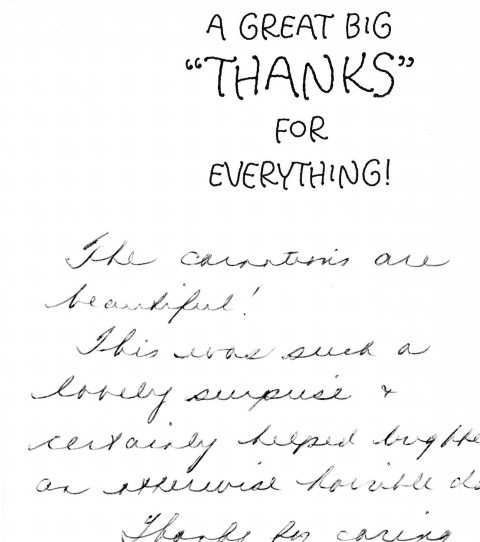 A GREAT BIG
“THANKS”
FOR
EVERYTHING!
The carnations are
beautiful!
This was such a
lovely surprise &
certainly helped brighte
an otherwise horrible da
Thanks for caring